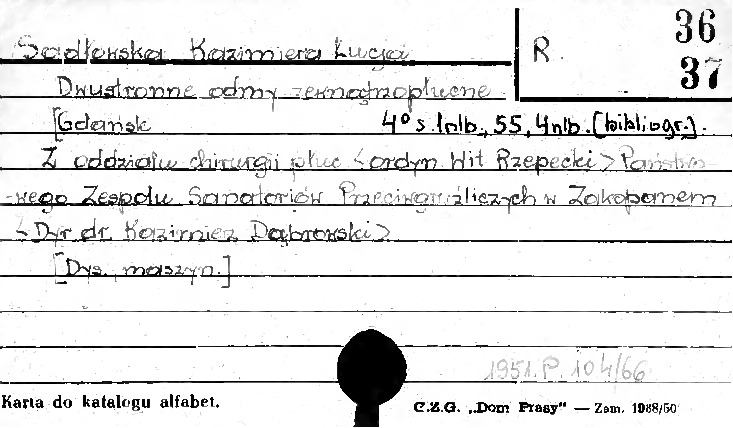 Sadłowska Kazimiera Łucja
R.
36
37
Dwustronne odmy zewnątrzopłucne
[Gdańsk 4° s. 1nlb., 55, 4nlb. [bibliogr.].
Z oddziału chirurgii płuc <ordyn Wit Rzepecki> Państwo-
-wego Zespołu Sanatoriów Przeciwgruźliczych w Zakopanem
<Dyr. dr. Kazimierz Dąbrowski>
[Dys. maszyn.]
1951.P. 104/66
Karta do katalogu alfabet.
C.Z.G. „Dom Prasy” — Zam. 1988/50